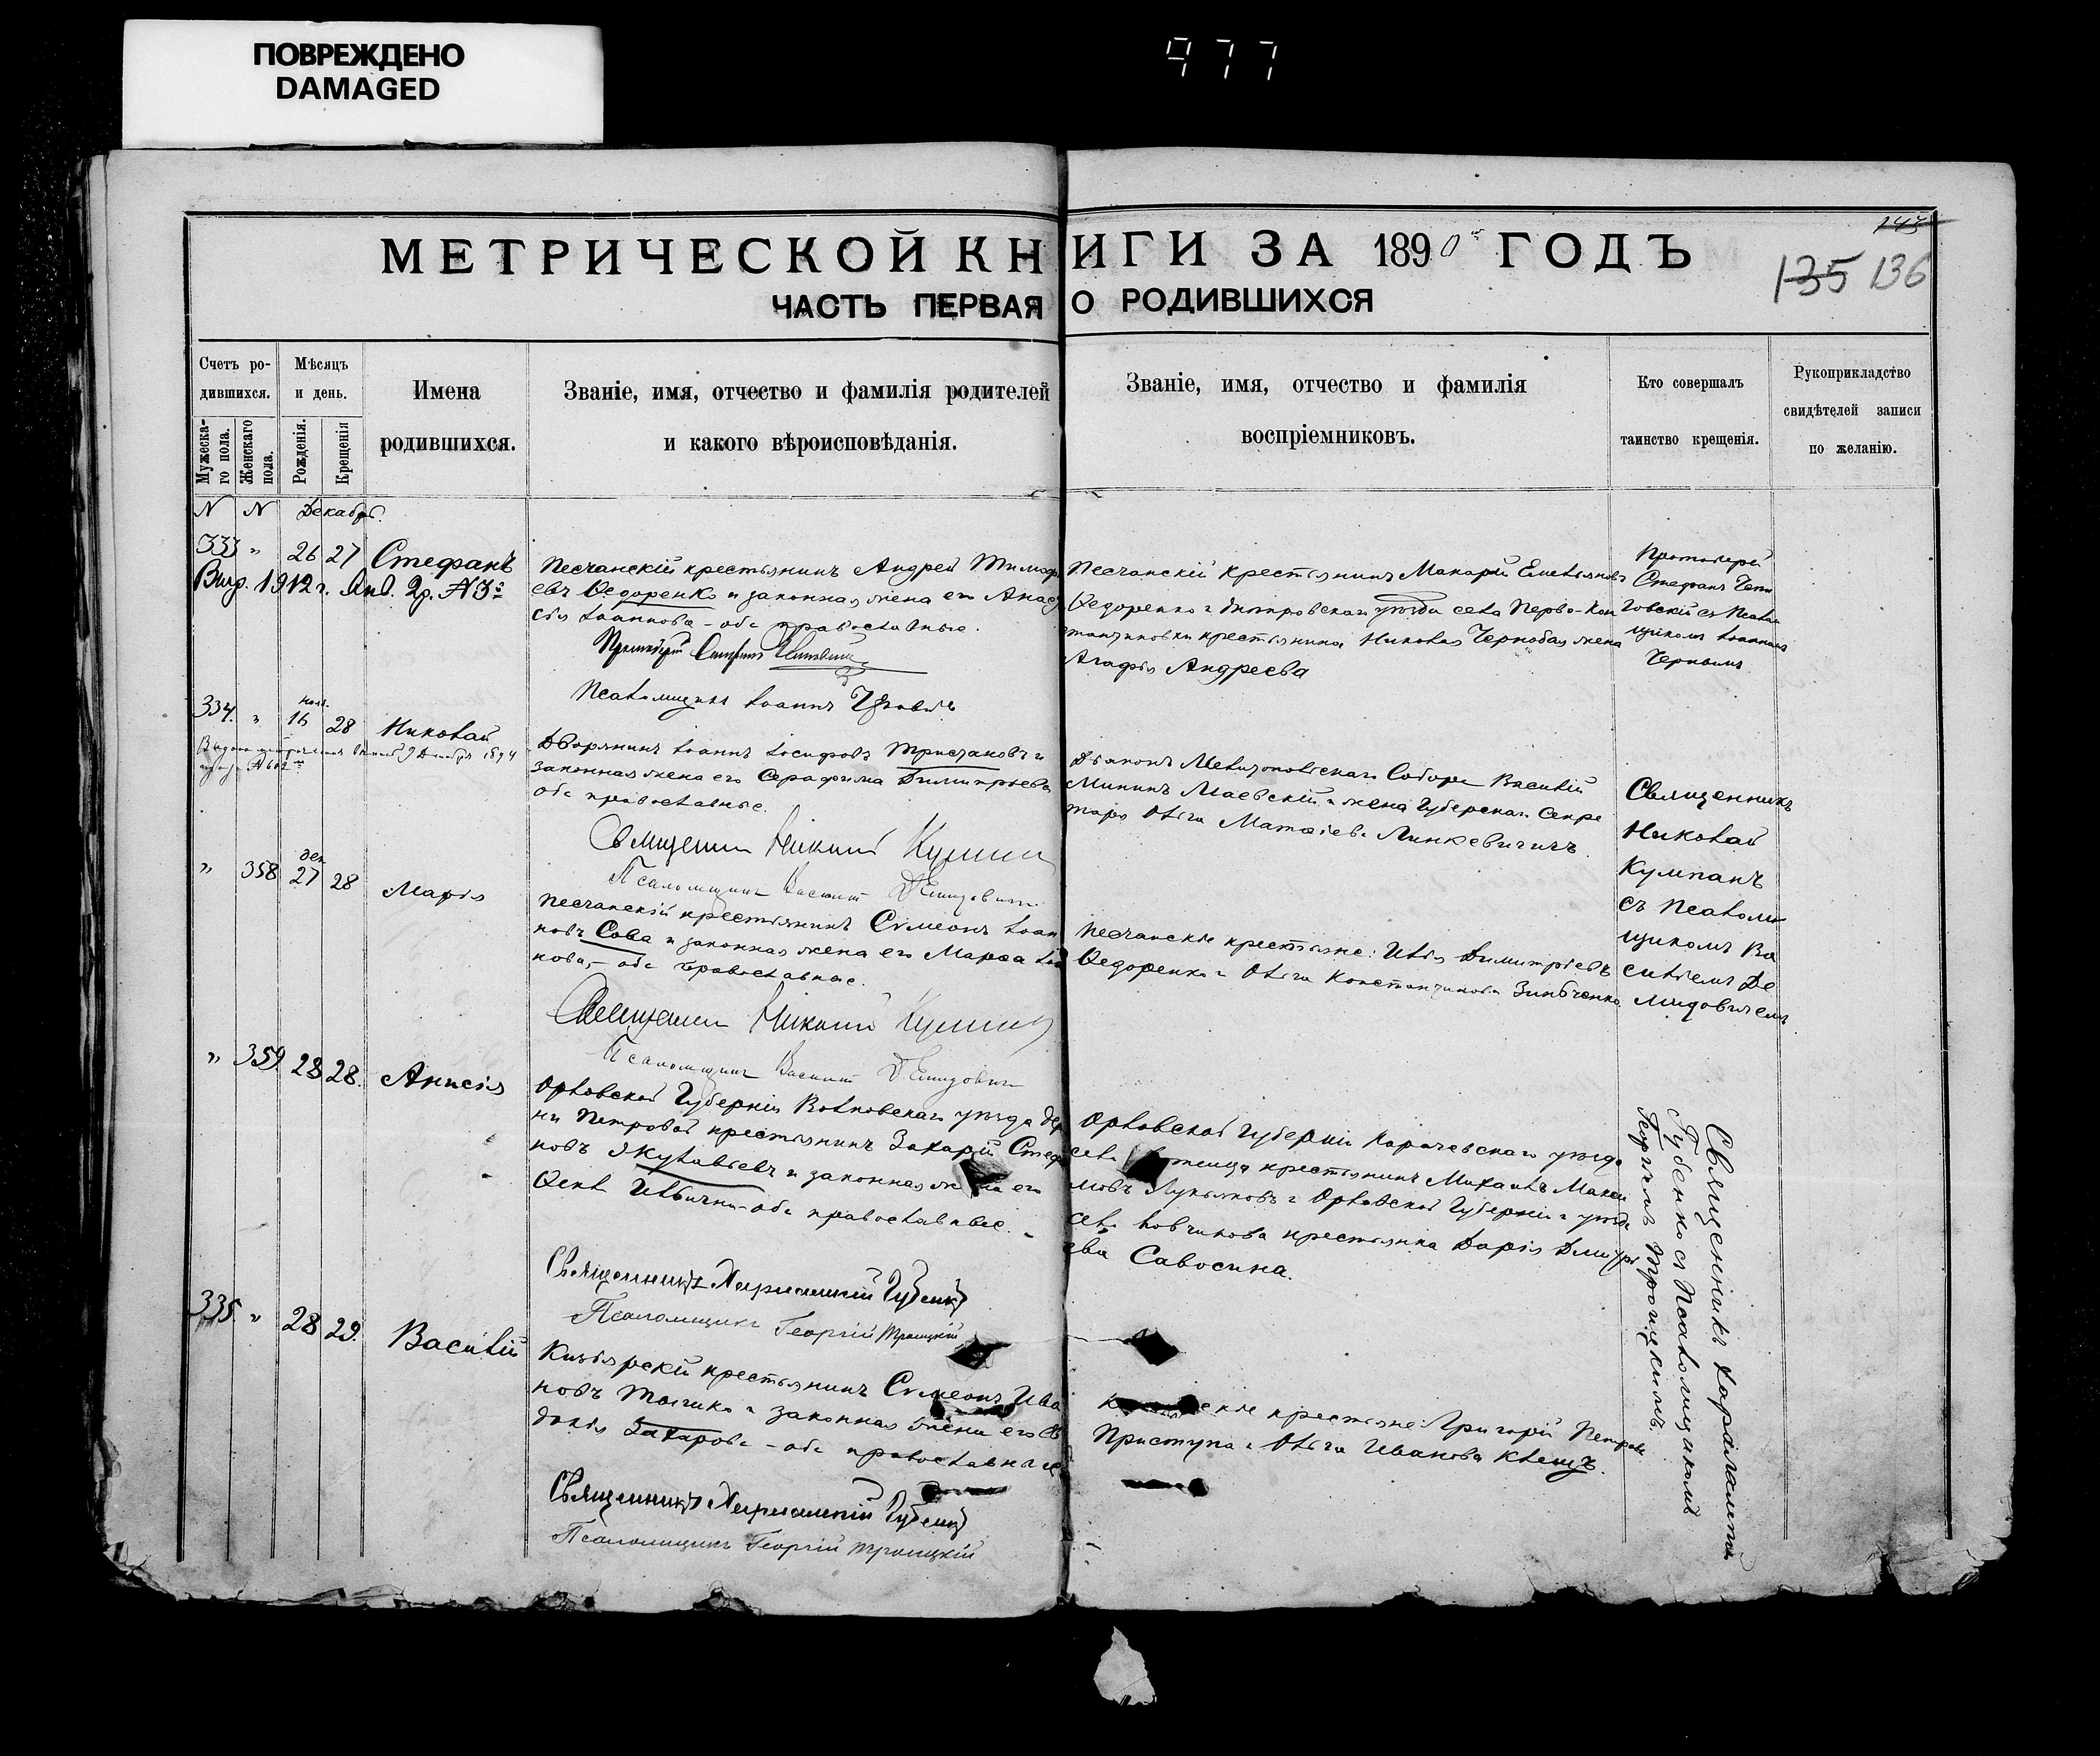 ПОВРЕЖДЕНО
DAMAGED
977
143
МЕТРИЧЕСКОЙ КНИГИ ЗА 1890 ГОДЪ
135 136
ЧАСТЬ ПЕРВАЯ О РОДИВШИХСЯ
Счетъ ро-
дившихся.
Мужеска-
го пола.
Женскаго
пола.
Мѣсяцъ
и день.
Рожденія.
Крещенія
Имена
родившихся.
Званіе, имя, отчество и фамилія родителей
и какого вѣроисповѣданія.
Званіе, имя, отчество и фамилія
воспріемниковъ.
Кто совершалъ
таинство крещенія.
Рукоприкладство
свидѣтелей записи
по желанію.
N N Декабрь.
333 " 26 27 Стефанъ
Выд. 1912 г. Янв. 2д. №3
Песчанскій крестьянинъ Андрей Тимоф
евъ Ѳедоренко и законная жена его Анас
сія Іоаннова - оба православные.
Протоіерей Стефанъ
Псаломщикъ Іоаннъ
Песчанскій крестьянинъ Макарій Емельяновъ
Ѳедоренко и Днѣпровскаго уѣзда села Перво-Кон
стантиновки крестьянина Николая Чернобая жена
Агафія Андреева
Протоіерей
Стефанъ
говскій съ Псалом
щикомъ Іоанномъ
334. " нояб. 16 28 Николай
9 Декабря 1894
Дворянинъ Іоаннъ Іосифовъ Трисчановъ и
законная жена его Серафима Димитріева
оба православные.
Священникъ Николай Кумпанъ
Псаломщикъ Василій Демидовичъ
Діаконъ Мелитопольскаго Собора Василій
Мининъ Маевскій и жена Губернскаго Секре
таря Ольга Матѳіева Линкевичичъ
Священникъ
Николай
Кумпанъ
съ Псалом
щикомъ Ва
силіемъ Де
мидовичемъ
" 358 дек 27 28 Марія
Песчанскій крестьянинъ Сѵмеонъ Іоан
новъ Сова и законная жена его Марѳа Іоа
нова, - оба православные.
Священникъ Николай Кумпанъ
Псаломщикъ Василій Демидовичъ
Песчанскіе крестьяне: Илія Димитріевъ
Ѳедоренко и Ольга Константинова Зинѣченко
" 359 28 28. Анисія
Орловской Губерніи Волховскаго уѣзда дер
ни Петровой крестьянинъ Захарій Стеф
новъ Якулавіевъ и законная жена его
Ѳекл Ильична - оба православные.
Священникъ Харлампій Губенко
Псаломщикъ Георгій Троицкій
Орловской Губерніи Карачевскаго уѣзда
села крестьянинъ Михаилъ Макси
мовъ Лукьяновъ и Орловской Губерніи и уѣзда
села крестьянка Дарія Дмитрі
ева Савосина.
Священникъ Харалампій
Губенко съ Псаломщикомъ
Георгіемъ Троицкимъ.
335. " 28 29. Василій
Кизіярскій крестьянинъ Сѵмеонъ Ива
новъ и законная жена его Ев
докія Захарова - оба православные
Священникъ Харлампій Губенко
Псаломщикъ Георгій Троицкій
крестьяне: Григорій Петровъ
Приступа и Ольга Иванова Клещъ.